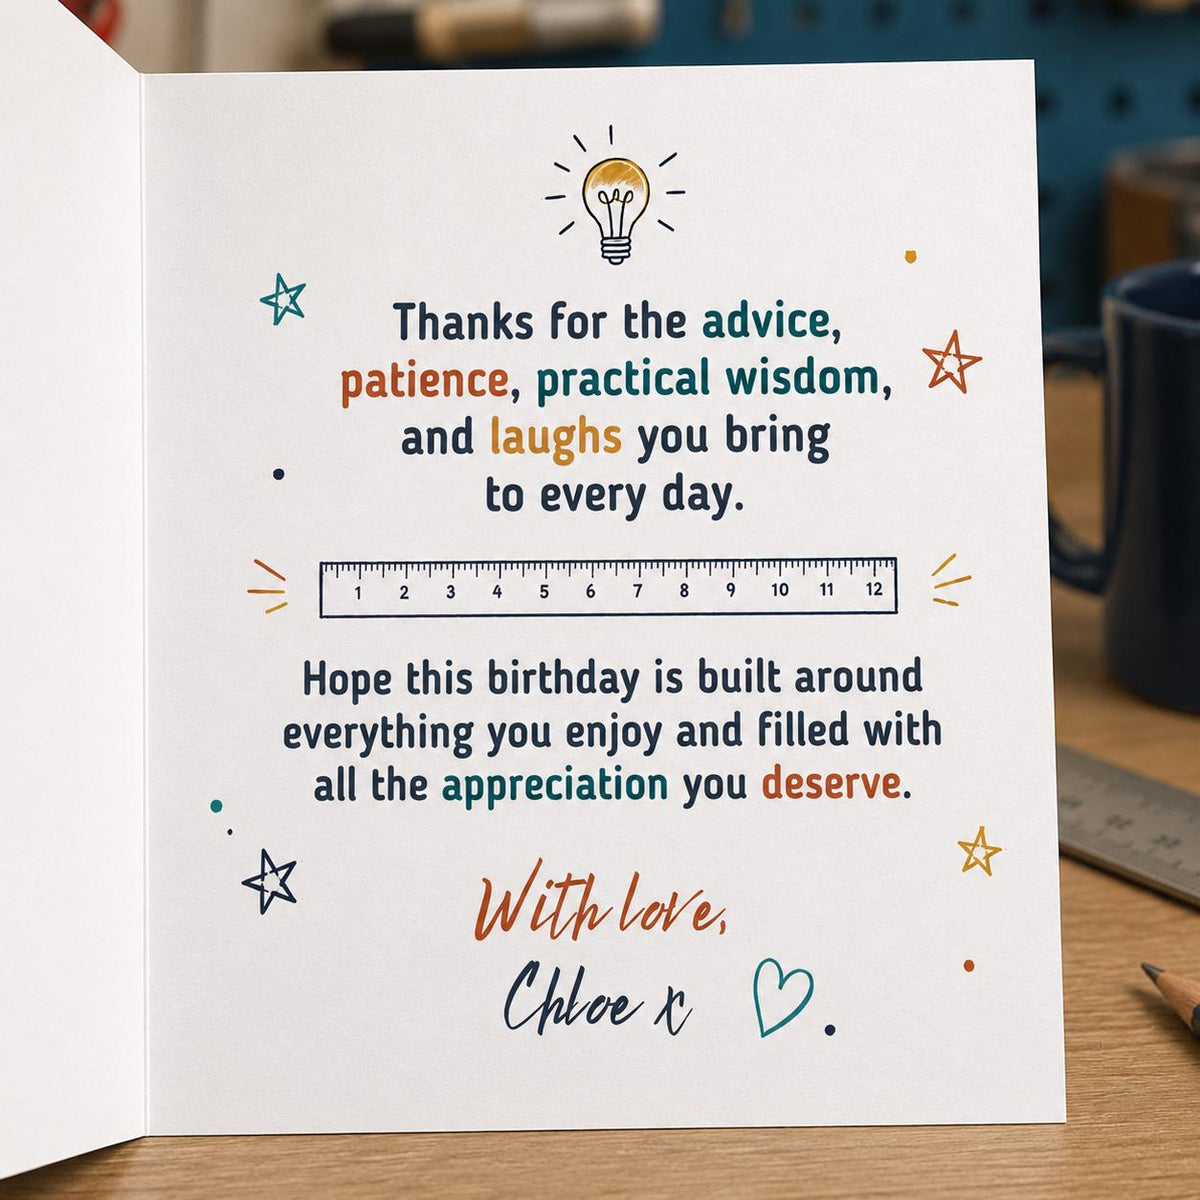 Thanks for the advice,
patience, practical wisdom,
and laughs you bring
to every day.
1 2 3 4 5 6 7 8 9 10 11 12
Hope this birthday is built around
everything you enjoy and filled with
all the appreciation you deserve.
With love,
Chloe x